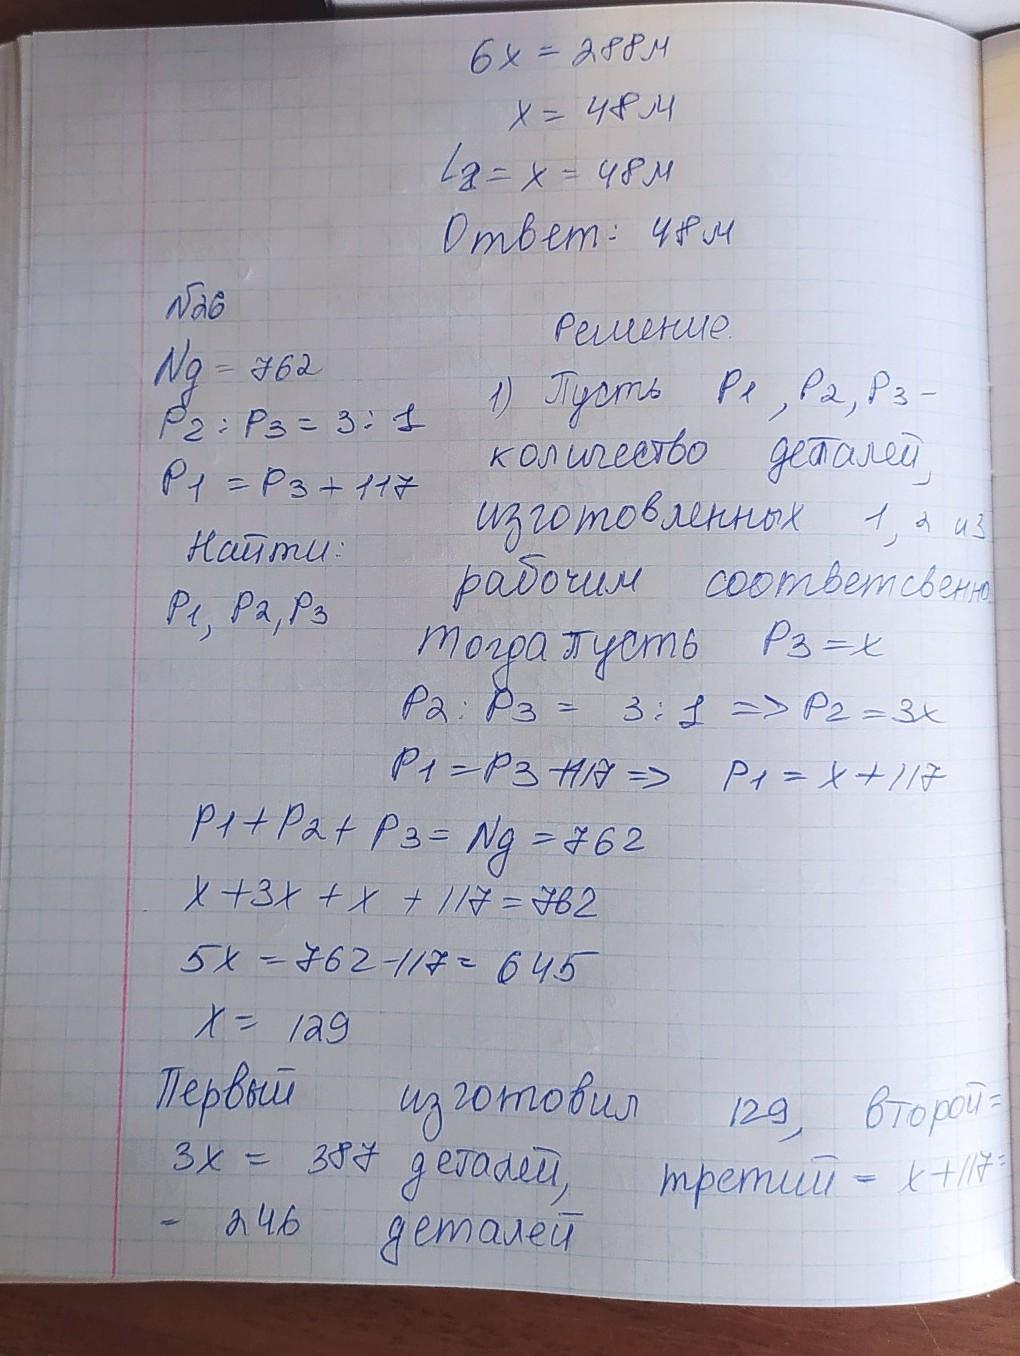 6x = 288м
x = 48м
L2 = x = 48м
Ответ: 48м
№26
Ng = 762
P2 : P3 = 3 : 1
P1 = P3 + 117
Найти:
P1, P2, P3
Решение.
1) Пусть P1, P2, P3 –
количество деталей,
изготовленных 1, 2 и 3
рабочим соответсвенно.
Тогда пусть P3 = x
P2 : P3 = 3 : 1 => P2 = 3x
P1 = P3 + 117 => P1 = x + 117
P1 + P2 + P3 = Ng = 762
x + 3x + x + 117 = 762
5x = 762 - 117 = 645
x = 129
Первый изготовил 129, второй =
3x = 387 деталей, третий = x + 117 =
- 246 деталей